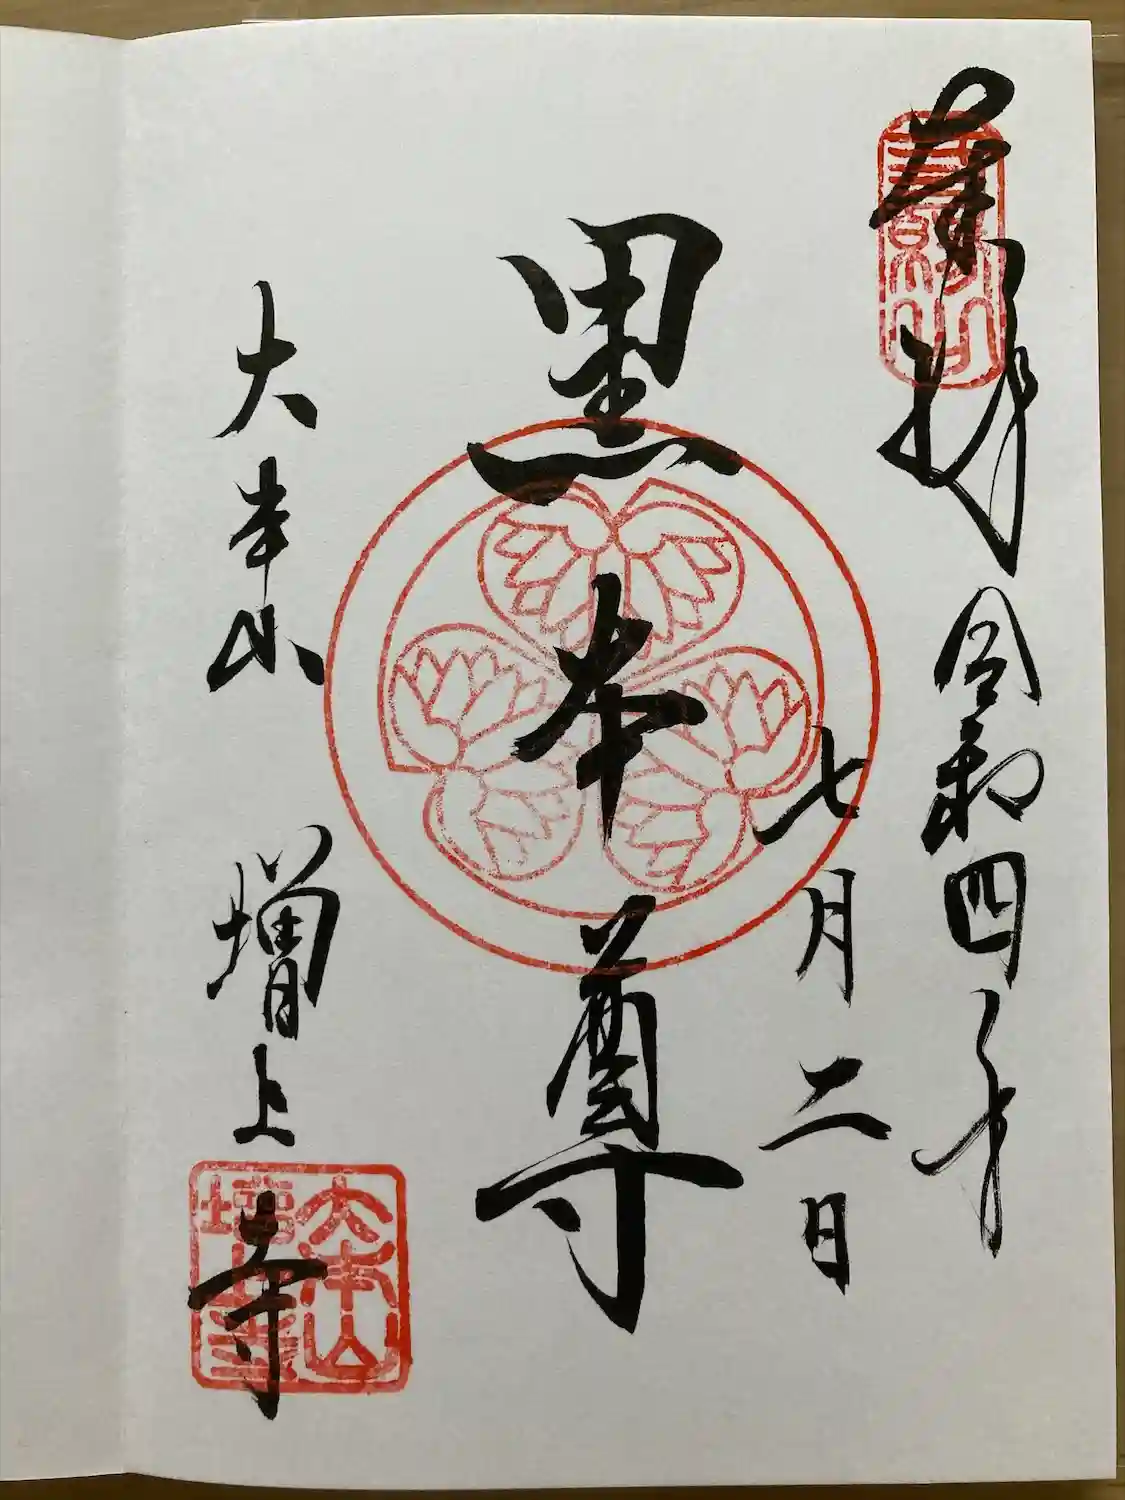 奉拝 令和四年
七月二日
黒本尊
大本山 増上寺
大本山
増上寺